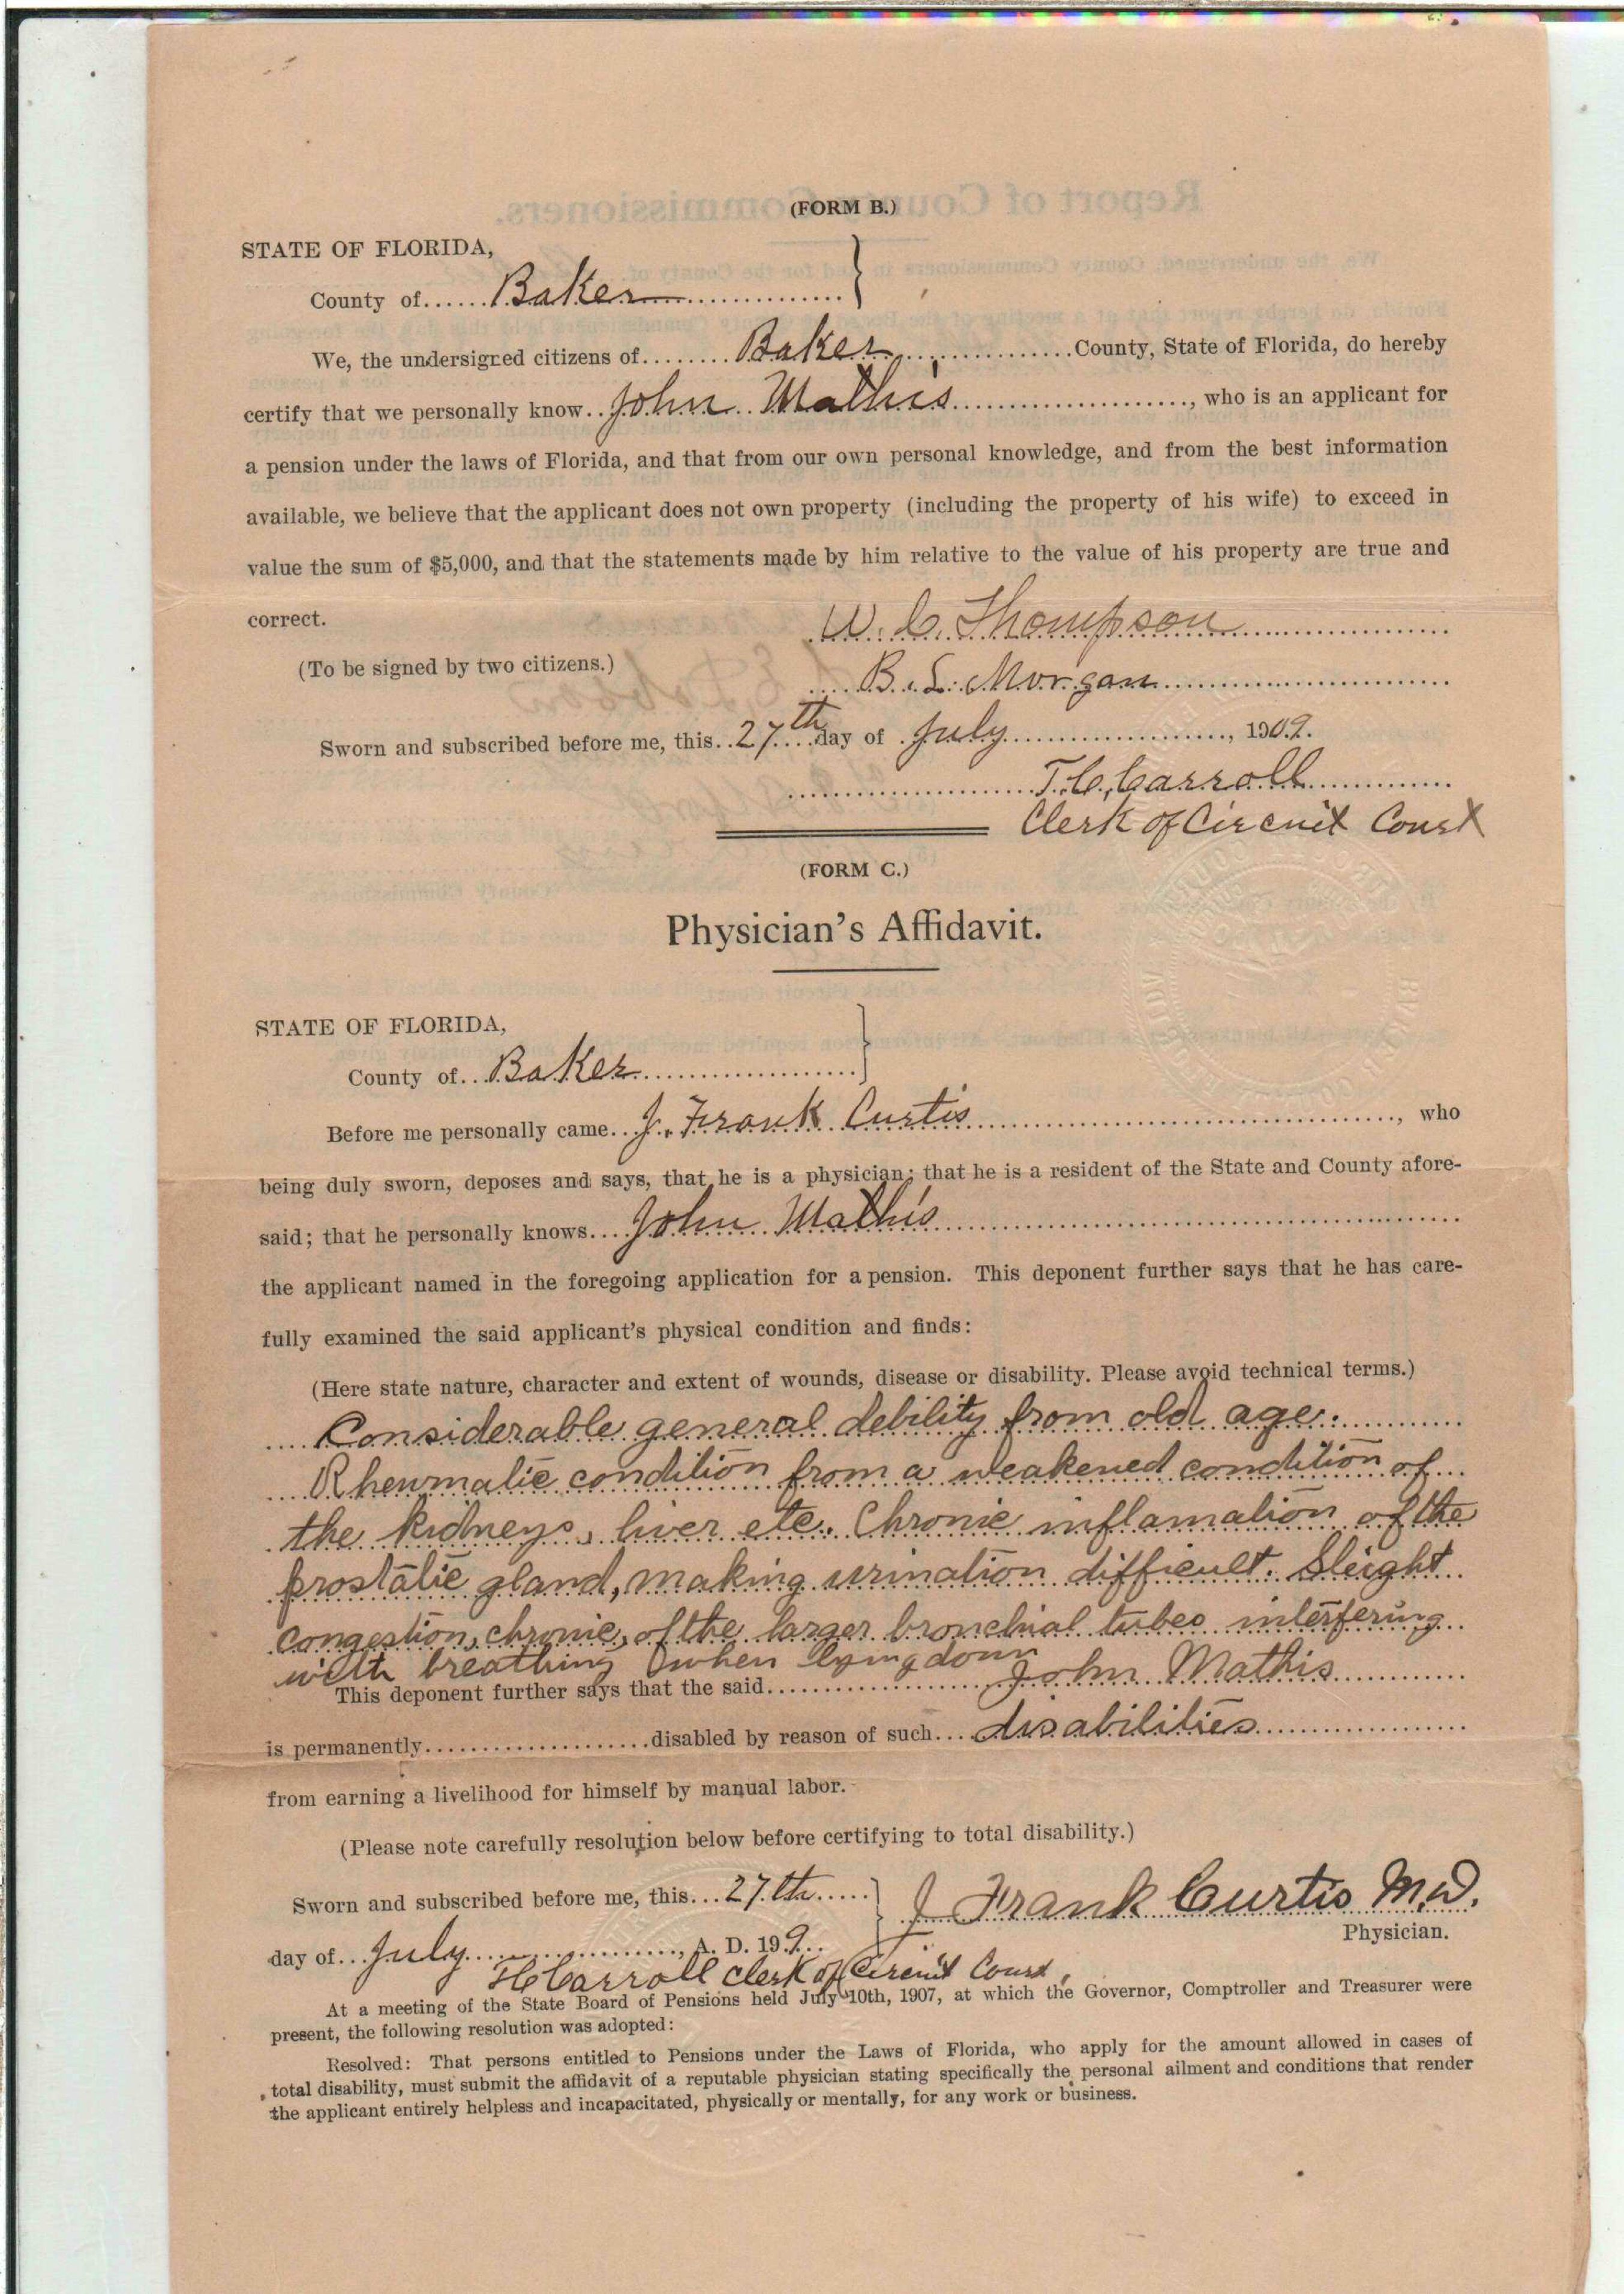 (FORM B.)
STATE OF FLORIDA,
County of......Baker..............
We, the undersigned citizens of........Baker................County, State of Florida, do hereby
certify that we personally know..John Mathis......................, who is an applicant for
a pension under the laws of Florida, and that from our own personal knowledge, and from the best information
available, we believe that the applicant does not own property (including the property of his wife) to exceed in
value the sum of $5,000, and that the statements made by him relative to the value of his property are true and
correct.
W. C. Thompson
(To be signed by two citizens.)
B. L. Morgan
Sworn and subscribed before me, this..27th...day of July...................., 1909.
T. C. Carroll
Clerk of Circuit Court
(FORM C.)
Physician's Affidavit.
STATE OF FLORIDA,
County of...Baker....................
Before me personally came..J. Frank Curtis..............................., who
being duly sworn, deposes and says, that he is a physician; that he is a resident of the State and County afore-
said; that he personally knows....John Mathis..............................
the applicant named in the foregoing application for a pension. This deponent further says that he has care-
fully examined the said applicant's physical condition and finds:
(Here state nature, character and extent of wounds, disease or disability. Please avoid technical terms.)
Considerable general debility from old age.
Rheumatic condition from a weakened condition of
the kidneys, liver etc. Chronic inflamation of the
prostatic gland, making urination difficult. Sleight
congestion, chronic, of the larger bronchial tubes interfering
with breathing when lying down
This deponent further says that the said....................John Mathis............
is permanently....................disabled by reason of such....disabilities....................
from earning a livelihood for himself by manual labor.
(Please note carefully resolution below before certifying to total disability.)
Sworn and subscribed before me, this...27th.....
J Frank Curtis M.D.
Physician.
day of...July...................., A. D. 199...
T C Carroll Clerk of Circuit Court,
At a meeting of the State Board of Pensions held July 10th, 1907, at which the Governor, Comptroller and Treasurer were
present, the following resolution was adopted:
Resolved: That persons entitled to Pensions under the Laws of Florida, who apply for the amount allowed in cases of
total disability, must submit the affidavit of a reputable physician stating specifically the personal ailment and conditions that render
the applicant entirely helpless and incapacitated, physically or mentally, for any work or business.